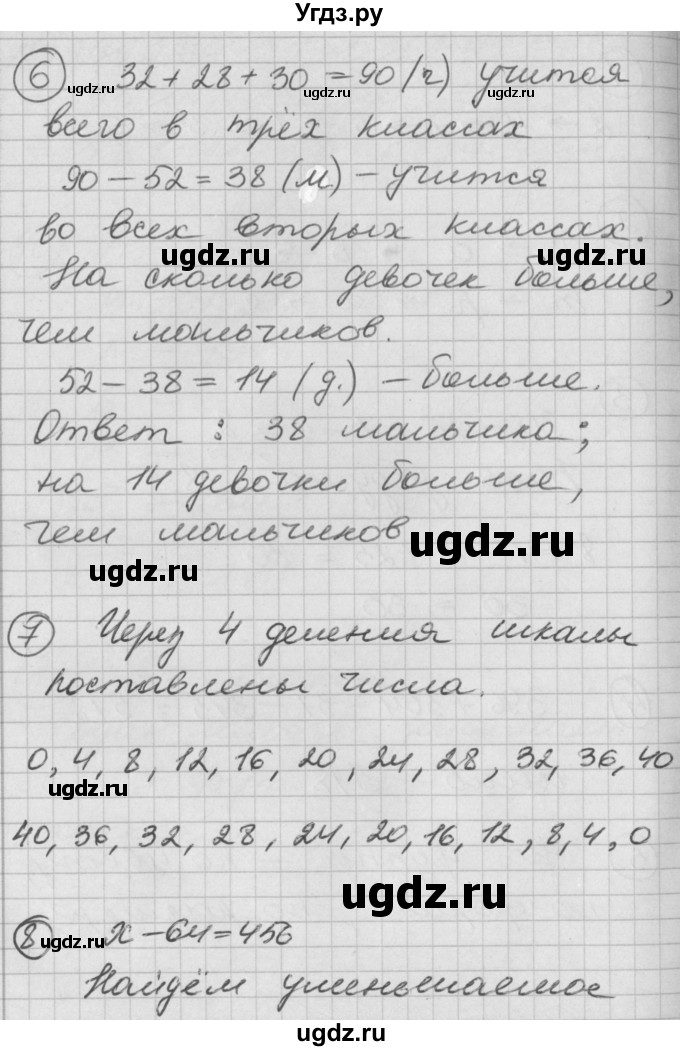 Угдз.ру
6 32 + 28 + 30 = 90 (ч) учится
всего в трёх классах
90 - 52 = 38 (м.) - учится
во всех вторых классах.
На сколько девочек больше,
чем мальчиков.
52 - 38 = 14 (д.) - больше.
Ответ: 38 мальчика;
на 14 девочки больше,
чем мальчиков
7 Через 4 деления шкалы
поставлены числа.
0, 4, 8, 12, 16, 20, 24, 28, 32, 36, 40
40, 36, 32, 28, 24, 20, 16, 12, 8, 4, 0
8 х - 64 = 456
Найдём уменьшаемое
ugdz.ru